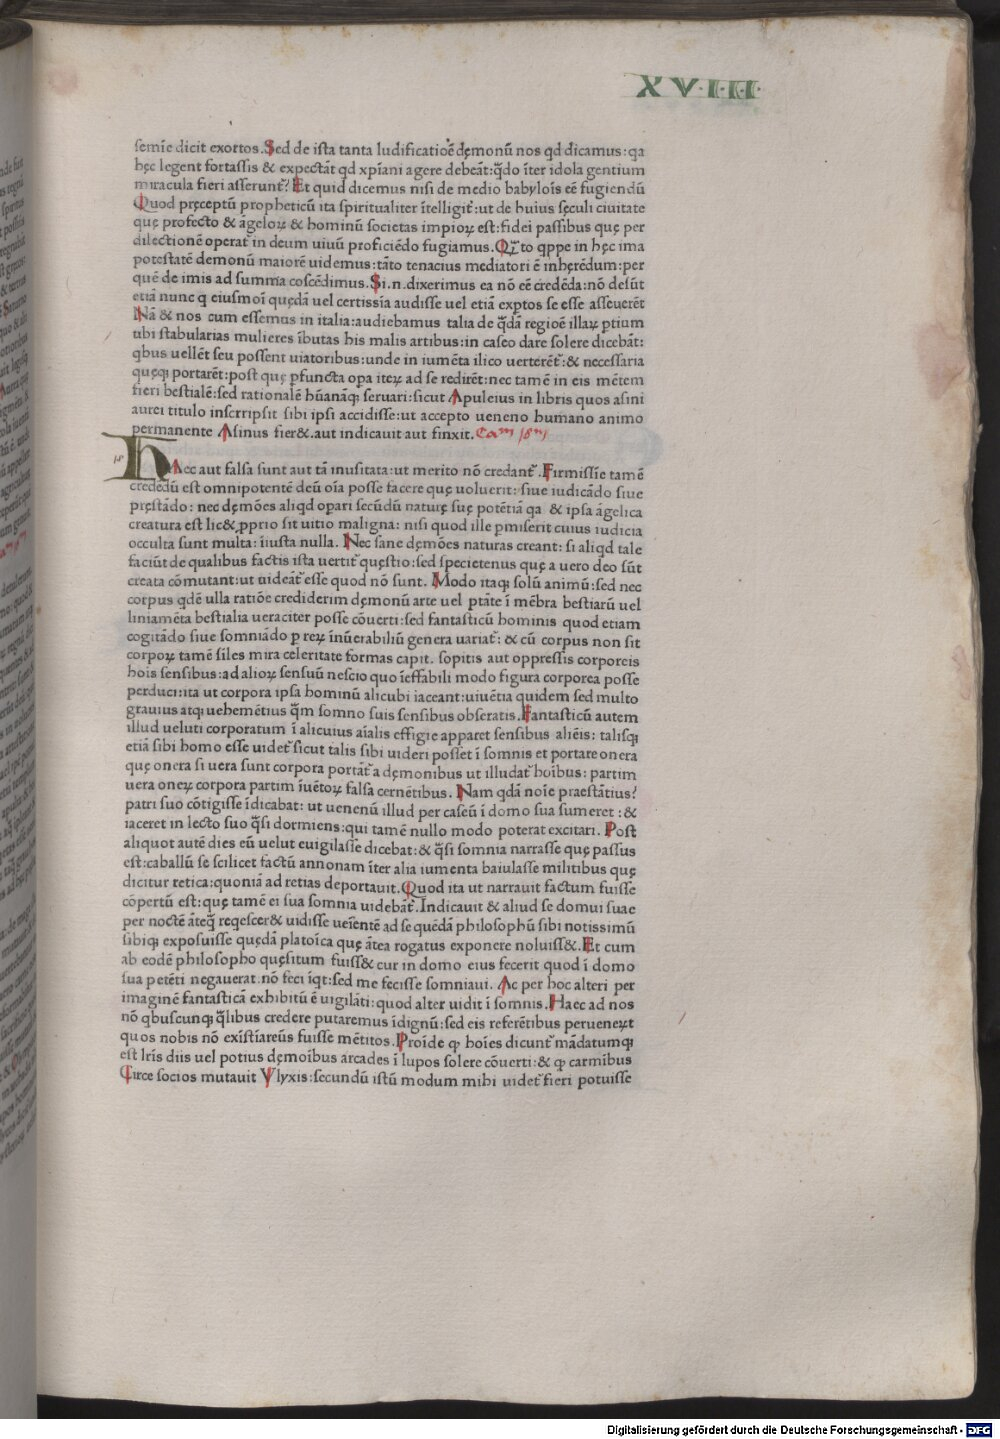 XVIII
semīe dicit exortos. Sed de ista tanta ludificatiōe dęmonū nos qd dicamus: qa
hęc legent fortassis & expectāt qd xpīani agere debeāt: q̄do īter idola gentium
miracula fieri asserunt? Et quid dicemus nisi de medio babyloīs eē fugiendū
Quod pręceptū propheticū ita spiritualiter ītelligit̄: ut de huius sęculi ciuitate
quę profecto & āgeloꝝ & hominū societas impioꝝ est: fidei passibus quę per
dilectionē operat̄ in deum uiuū proficiēdo fugiamus. Q̄to qppe in hęc ima
potestatē demonū maiorē uidemus: tāto tenacius mediatori ē inhęrēdum: per
quē de imis ad summa coscēdimus. Si .n. dixerimus ea nō eē credēda: nō desūt
etiā nunc q eiusmoī quędā uel certissīa audisse uel etiā exptos se esse asseuerēt
Nā & nos cum essemus in italia: audiebamus talia de q̄dā regioē illaꝝ ptium
ubi stabularias mulieres ībutas his malis artibus: in caseo dare solere dicebāt:
qbus uellēt seu possent uiatoribus: unde in iumēta ilico uerterēt̄: & necessaria
quęqꝫ portarēt: post quę pfuncta opa iteꝝ ad se redirēt: nec tamē in eis mētem
fieri bestialē: sed rationalē hūanāqꝫ seruari: sicut Apuleius in libris quos asini
aurei titulo inscrripsit sibi ipsi accidisse: ut accepto ueneno humano animo
permanente Asinus fier&. aut indicauit aut finxit. Cam 18m
18
HAec aut falsa sunt aut tā inusitata: ut merito nō credant̄. Firmissīe tamē
credēdū est omnipotentē deū oīa posse facere quę uoluerit: siue iudicādo siue
pręstādo: nec dęmōes aliqd opari secūdū naturę suę potētiā qa & ipsa āgelica
creatura est lic& pprio sit uitio maligna: nisi quod ille pmiserit cuius iudicia
occulta sunt multa: īiusta nulla. Nec sane dęmōes naturas creant: si aliqd tale
faciūt de qualibus factis ista uertit̄ quęstio: sed specietenus quę a uero deo sūt
creata cōmutant: ut uideāt̄ esse quod nō sunt. Modo itaqꝫ solū animū: sed nec
corpus qdē ulla ratiōe crediderim dęmonū arte uel ptāte ī mēbra bestiarū uel
liniamēta bestialia ueraciter posse cōuerti: sed fantasticū hominis quod etiam
cogitādo siue somniādo p reꝝ īnūerabiliū genera uariat̄: & cū corpus non sit
corpoꝝ tamē siles mira celeritate formas capit. sopitis aut oppressis corporeis
hoīs sensibus: ad alioꝝ sensuū nescio quo īeffabili modo figura corporea posse
perduci: ita ut corpora ipsa hominū alicubi iaceant: uiuētia quidem sed multo
grauius atqꝫ uehemētius q̄m somno suis sensibus obseratis. Fantasticū autem
illud ueluti corporatum ī alicuius aīalis effigie apparet sensibus aliēis: talisqꝫ
etiā sibi homo esse uidet̄ sicut talis sibi uideri posset ī somnis et portare onera
quę onera si uera sunt corpora portāt̄ a dęmonibus ut illudat̄ hoībus: partim
uera oneꝝ corpora partim iuētoꝝ falsa cernētibus. Nam qdā noīe praestātius?
patri suo cōtigisse īdicabat: ut uenenū illud per caseū ī domo sua sumeret: &
iaceret in lecto suo q̄si dormiens: qui tamē nullo modo poterat excitari. Post
aliquot autē dies eū uelut euigilasse dicebat: & q̄si somnia narrasse quę passus
est: caballū se scilicet factū annonam īter alia iumenta baiulasse militibus quę
dicitur retica: quoniā ad retias deportauit. Quod ita ut narrauit factum fuisse
cōpertū est: quę tamē ei sua somnia uidebāt̄. Indicauit & aliud se domui suae
per noctē āteq̄ reqescer& uidisse ueīentē ad se quēdā philosophū sibi notissimū
sibiqꝫ exposuisse quędā platoīca quę ātea rogatus exponere noluiss&. Et cum
ab eodē philosopho quęsitum fuiss& cur in domo eius fecerit quod ī domo
sua petēti negauerat: nō feci īqt: sed me fecisse somniaui. Ac per hoc alteri per
imaginē fantasticā exhibitū ē uigilāti: quod alter uidit ī somnis. Haec ad nos
nō qbuscunqꝫ q̄libus credere putaremus īdignū: sed eis referētibus perueneꝝt
quos nobis nō exīstīareūs fuisse mētitos. Proīde qꝫ hoīes dicunt̄ mādatumqꝫ
est lrīs diis uel potius dęmoībus arcades ī lupos solere cōuerti: & qꝫ carmībus
Circe socios mutauit Vlyxis: secundū istū modum mihi uidet̄ fieri potuisse
Digitalisierung gefördert durch die Deutsche Forschungsgemeinschaft - DFG